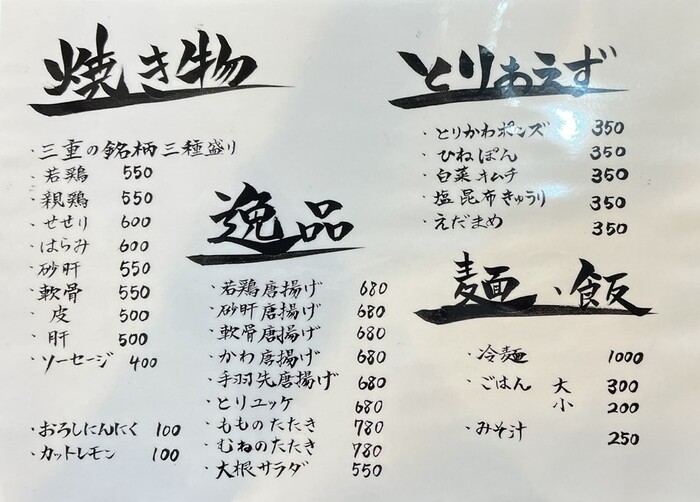 焼き物
・三重の銘柄三種盛り
・若鶏 550
・親鶏 550
・せせり 600
・はらみ 600
・砂肝 550
・軟骨 550
・皮 500
・肝 500
・ソーセージ 400
・おろしにんにく 100
・カットレモン 100
逸品
・若鶏唐揚げ 680
・砂肝唐揚げ 680
・軟骨唐揚げ 680
・かわ唐揚げ 680
・手羽先唐揚げ 680
・とりユッケ 680
・もものたたき 780
・むねのたたき 780
・大根サラダ 550
とりあえず
・とりかわポンズ 350
・ひねぽん 350
・白菜キムチ 350
・塩昆布きゅうり 350
・えだまめ 350
麺、飯
・冷麺 1000
・ごはん 大 300
小 200
・みそ汁 250